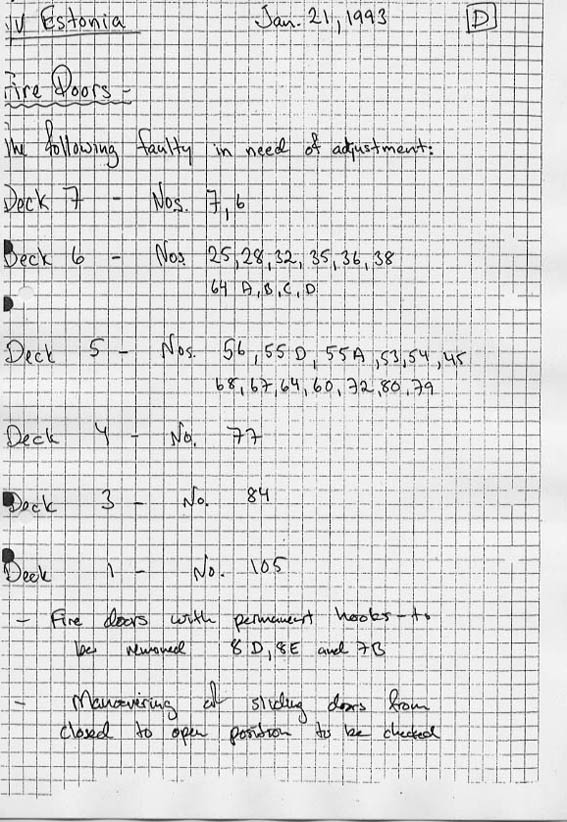 M/V Estonia Jan. 21, 1993 D
Fire Doors -
The following faulty in need of adjustment:
Deck 7 - Nos. 7, 6
Deck 6 - Nos 25, 28, 32, 35, 36, 38
64 A, B, C, D
Deck 5 - Nos. 56, 55 D, 55A, 53, 54, 45
68, 67, 64, 60, 72, 80, 79
Deck 4 - No. 77
Deck 3 - No. 84
Deck 1 - No. 105
- Fire doors with permanent hooks - to
be removed 8 D, 8E and 7B
- Manoevering of sliding doors from
closed to open position to be checked